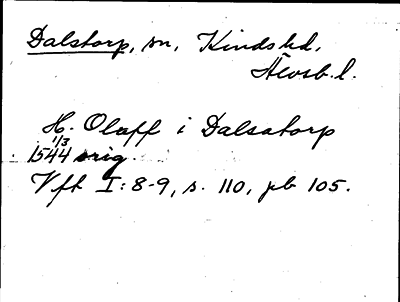 Dalstorp, sn, Kinds hd,
Älvsb. l.
H. Olaff i Dalsatorp
1/3
1544 orig.
Vft I: 8-9, s. 110, pb 105.